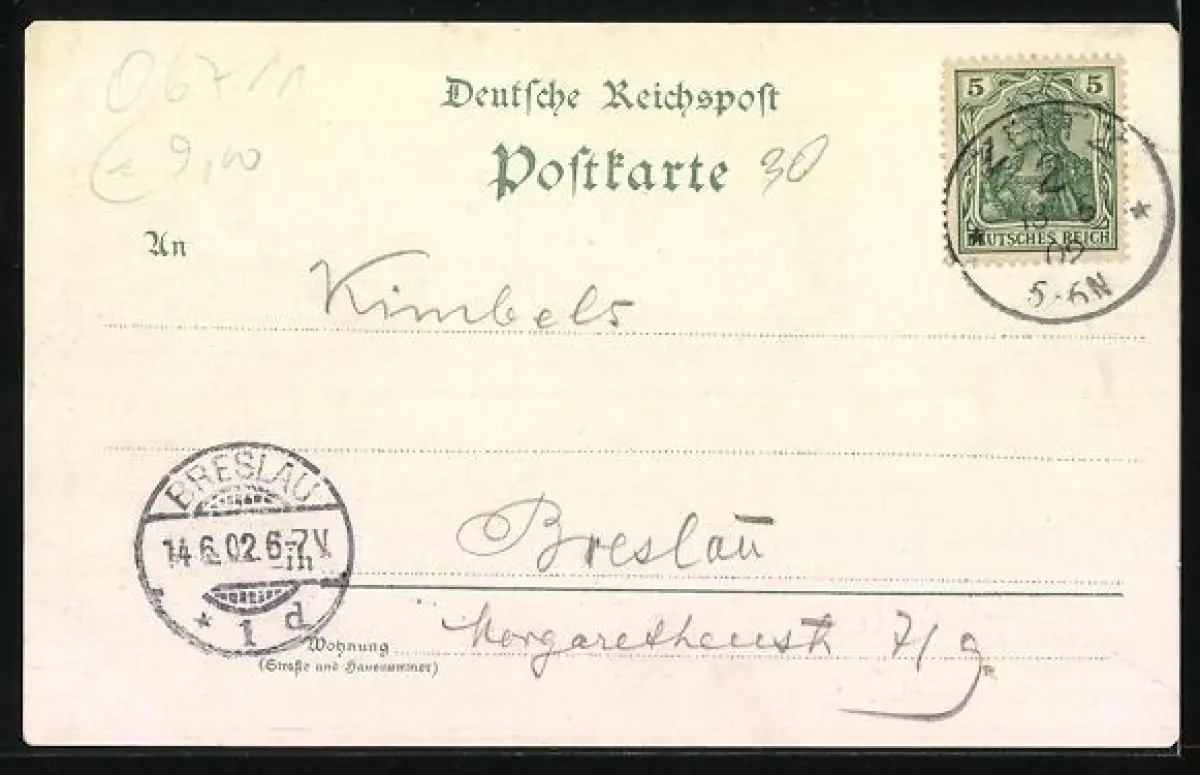 067/11
Deutsche Reichspost
€ 9,00
Postkarte 30
5 5
DEUTSCHES REICH
2
13 6
02
5-6N
An
Kimbels
BRESLAU
14.6.02.6-7V
* 1 d
in
Breslau
Wohnung
(Straße und Hausnummer)
Margarethenstr 7/9